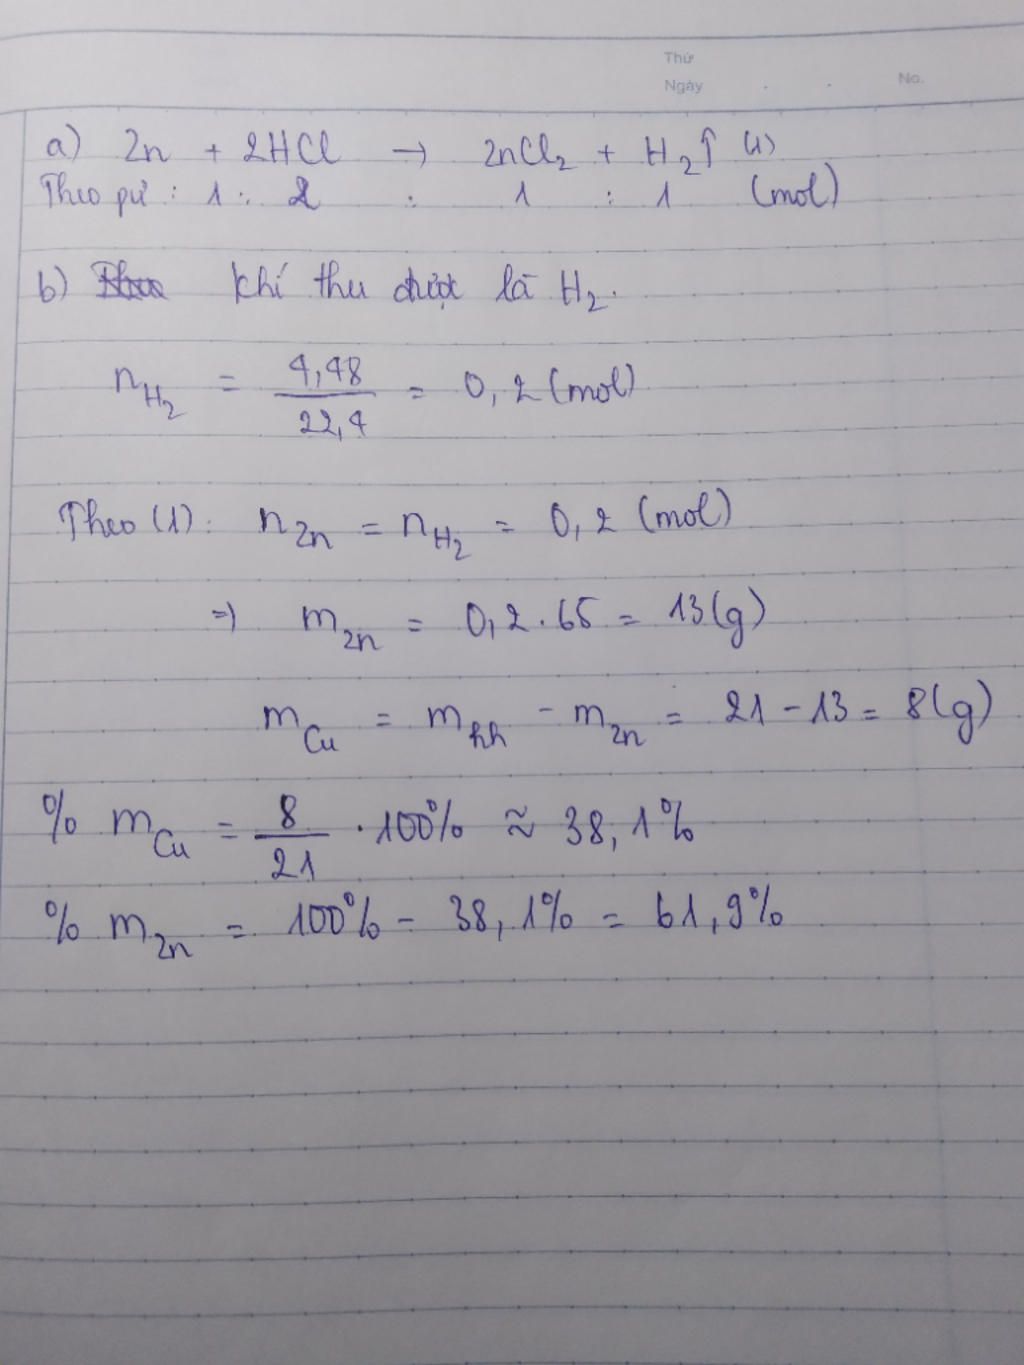 Thứ
Ngày . . No.
a) Zn + 2HCl → ZnCl₂ + H₂↑ (1)
Theo pư : 1 : 2 : 1 : 1 (mol)
b) khí thu được là H₂.
n_H₂ = 4,48/22,4 = 0,2 (mol)
Theo (1): n_Zn = n_H₂ = 0,2 (mol)
=) m_Zn = 0,2 . 65 = 13(g)
m_Cu = m_hh - m_Zn = 21 - 13 = 8(g)
% m_Cu = 8/21 . 100% ≈ 38,1%
% m_Zn = 100% - 38,1% = 61,9%